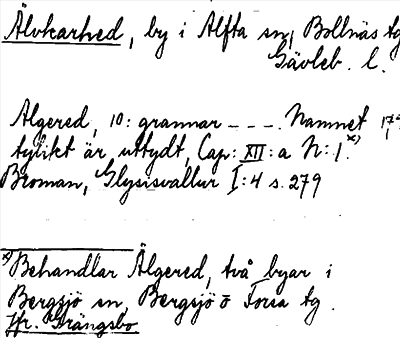 Älvkarhed, by i Alfta sn, Bollnäs tg
Gävleb. l.
Algered, 10: grannar - - -. Namnet 
tylikt är uttydt, Cap: XII: a N: 1.x)
Broman, Glysisvallur I: 4 s. 279
x) Behandlar Älgered, två byar i
Bergsjö sn, Bergsjö o Forsa tg.
Jfr. Grängsbo